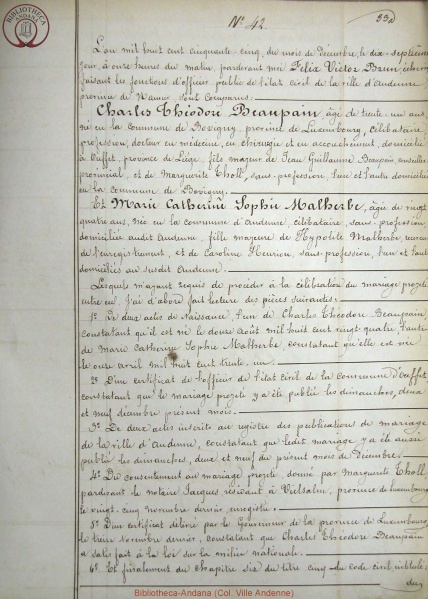 BIBLIOTHECA ANDANA
N° 42.
L'an mil huit cent cinquante-cinq, du mois de Décembre, le dix-septième
jour, à onze heures du matin, pardevant moi Félix Victor Brun, échevin
faisant les fonctions d'officier public de l'état civil de la ville d'andenne,
province de Namur, sont comparus.
Charles Théodore Beaupain, âgé de trente-un ans,
né en la commune de Bovigny, province de Luxembourg, célibataire,
profession, docteur en médecine, en chirurgie et en accouchement, domicilié
à Ouffet, province de Liége, fils majeur de Jean Guillaume Beaupain, conseiller
provincial, et de Marguerite Tholl, sans profession, l'un et l'autre domiciliés
en la commune de Bovigny.
Et Marie Catherine Sophie Malherbe, âgée de vingt
quatre ans, née en la commune d'andenne, célibataire, sans profession,
domiciliée audit andenne, fille majeure de Hypolite Malherbe, receveur
de l'enregistrement, et de Caroline Henrion, sans profession, l'un et l'autre
domiciliés au susdit andenne.
Lesquels m'ayant requis de procéder à la célébration du mariage projeté
entre eux, j'ai d'abord fait lecture des pièces suivantes:
1° De deux actes de naissance, l'un de Charles Théodore Beaupain
constatant qu'il est né le douze août mil huit cent vingt-quatre, l'autre
de Marie Catherine Sophie Malherbe, constatant qu'elle est née
le onze avril mil huit cent trente-un.
2° D'un certificat de l'officier de l'état civil de la commune d'Ouffet
constatant que le mariage projeté y a été publié les dimanches, deux
et neuf décembre présent mois.
3° De deux actes inscrits au registre des publications de mariage
de la ville d'andenne, constatant que ledit mariage y a été aussi
publié les dimanches, deux et neuf du présent mois de Décembre.
4° Du consentement au mariage projeté, donné par Marguerite Tholl,
pardevant le notaire Jacques résidant à Vielsalm, province de Luxembourg
le vingt-cinq novembre dernier, enregistré.
5° D'un certificat délivré par le Gouverneur de la province de Luxembourg,
le treize Novembre dernier, constatant que Charles Théodore Beaupain
a satisfait à la loi sur la milice nationale.
6° Et finalement du chapitre six du titre cinq du code civil, intitulé,
Bibliotheca-Andana (Col. Ville Andenne)